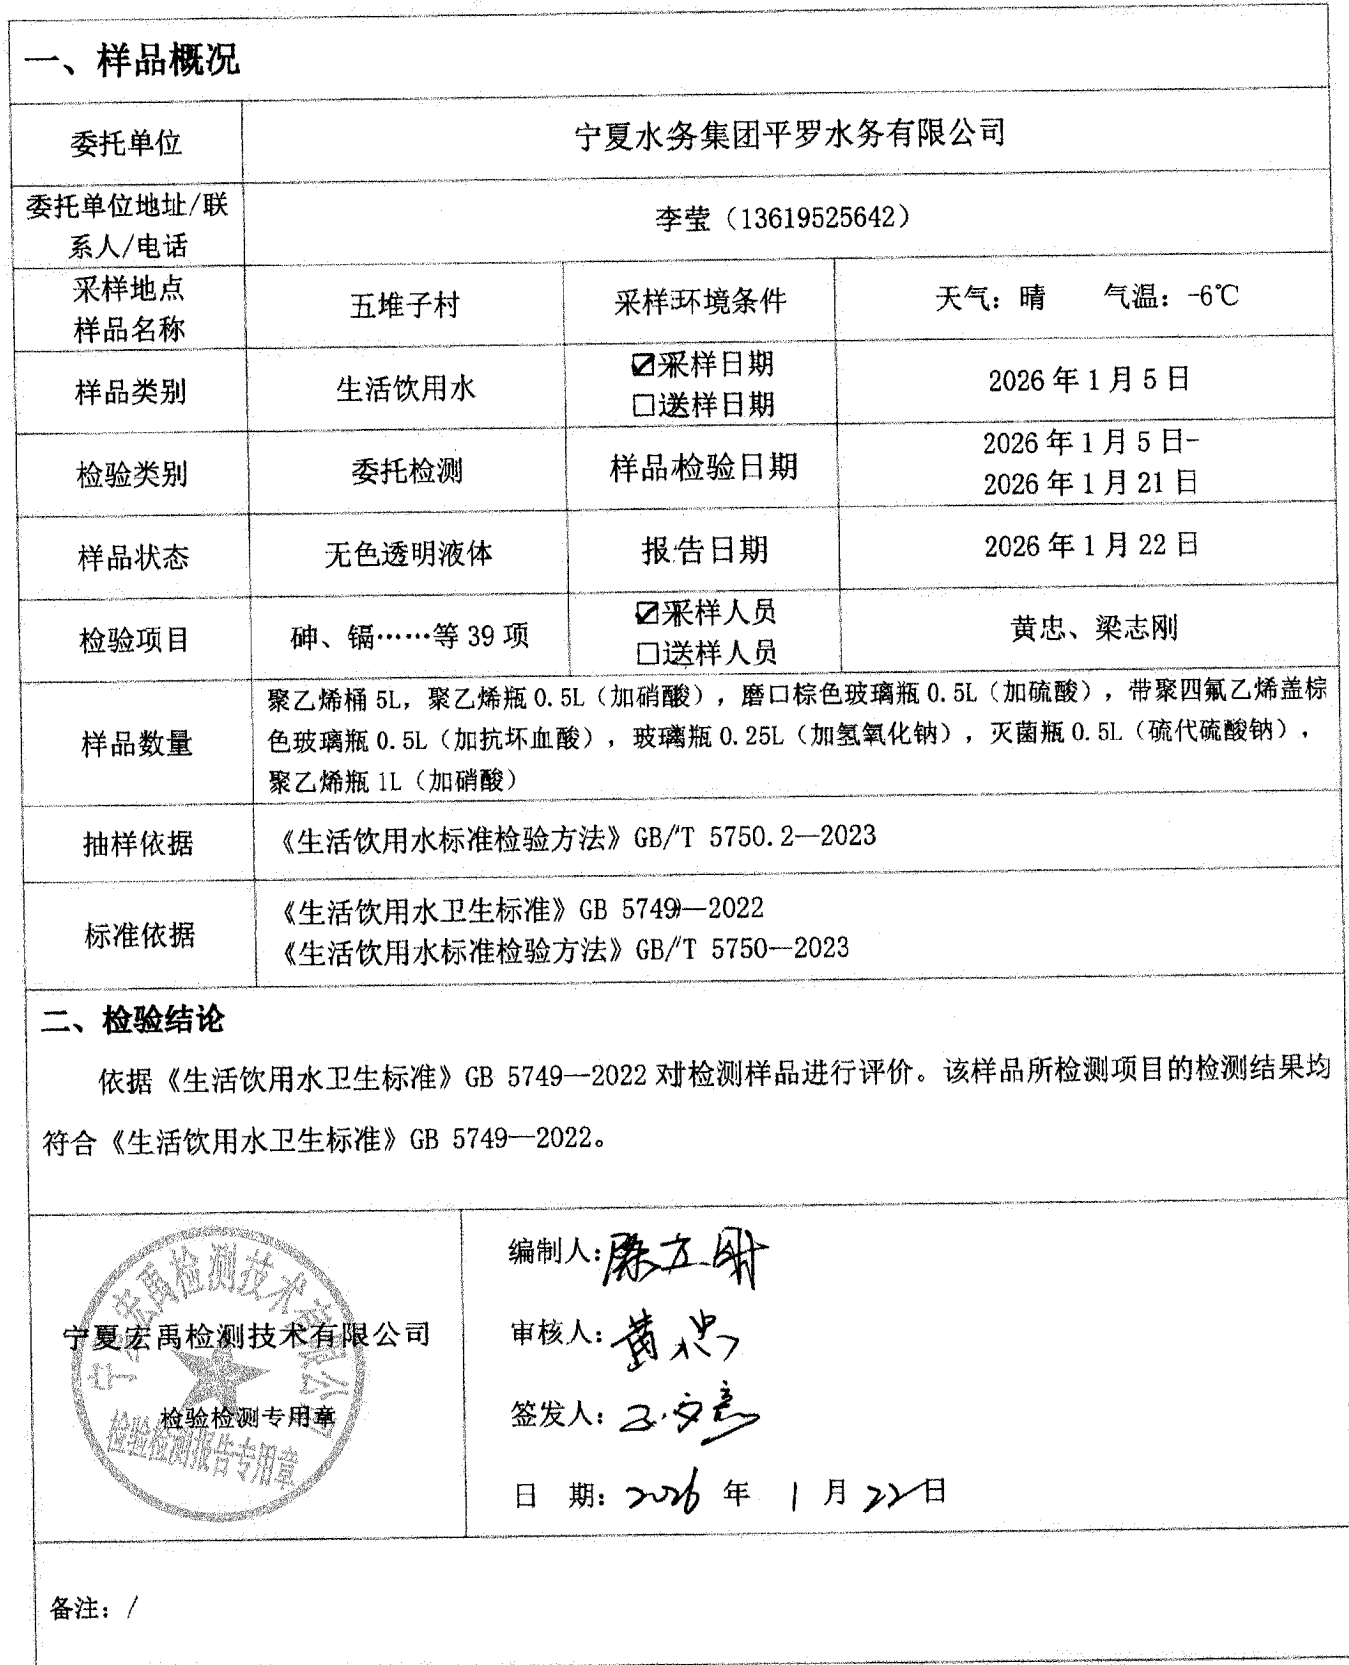 一、样品概况
委托单位
宁夏水务集团平罗水务有限公司
委托单位地址/联
系人/电话
李莹（13619525642）
采样地点
样品名称
五堆子村
采样环境条件
天气：晴 气温：-6℃
样品类别
生活饮用水
☑采样日期
□送样日期
2026年1月5日
检验类别
委托检测
样品检验日期
2026年1月5日-
2026年1月21日
样品状态
无色透明液体
报告日期
2026年1月22日
检验项目
砷、镉……等39项
☑采样人员
□送样人员
黄忠、梁志刚
样品数量
聚乙烯桶5L，聚乙烯瓶0.5L（加硝酸），磨口棕色玻璃瓶0.5L（加硫酸），带聚四氟乙烯盖棕
色玻璃瓶0.5L（加抗坏血酸），玻璃瓶0.25L（加氢氧化钠），灭菌瓶0.5L（硫代硫酸钠），
聚乙烯瓶1L（加硝酸）
抽样依据
《生活饮用水标准检验方法》GB/T 5750.2—2023
标准依据
《生活饮用水卫生标准》GB 5749—2022
《生活饮用水标准检验方法》GB/T 5750—2023
二、检验结论
依据《生活饮用水卫生标准》GB 5749—2022对检测样品进行评价。该样品所检测项目的检测结果均
符合《生活饮用水卫生标准》GB 5749—2022。
宁夏宏禹检测技术有限公司
宁夏宏禹检测技术有限公司
检验检测专用章
检验检测报告专用章
编制人：
审核人：黄忠
签发人：
日 期：2026年1月22日
备注：/